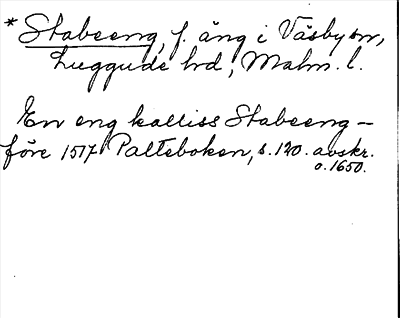 * Stabeeng, f. äng i Väsby sn,
Luggude hd, Malm. l.
En eng kalliss Stabeeng –
före 1517 Palteboken, s. 120. avskr.
o. 1650.